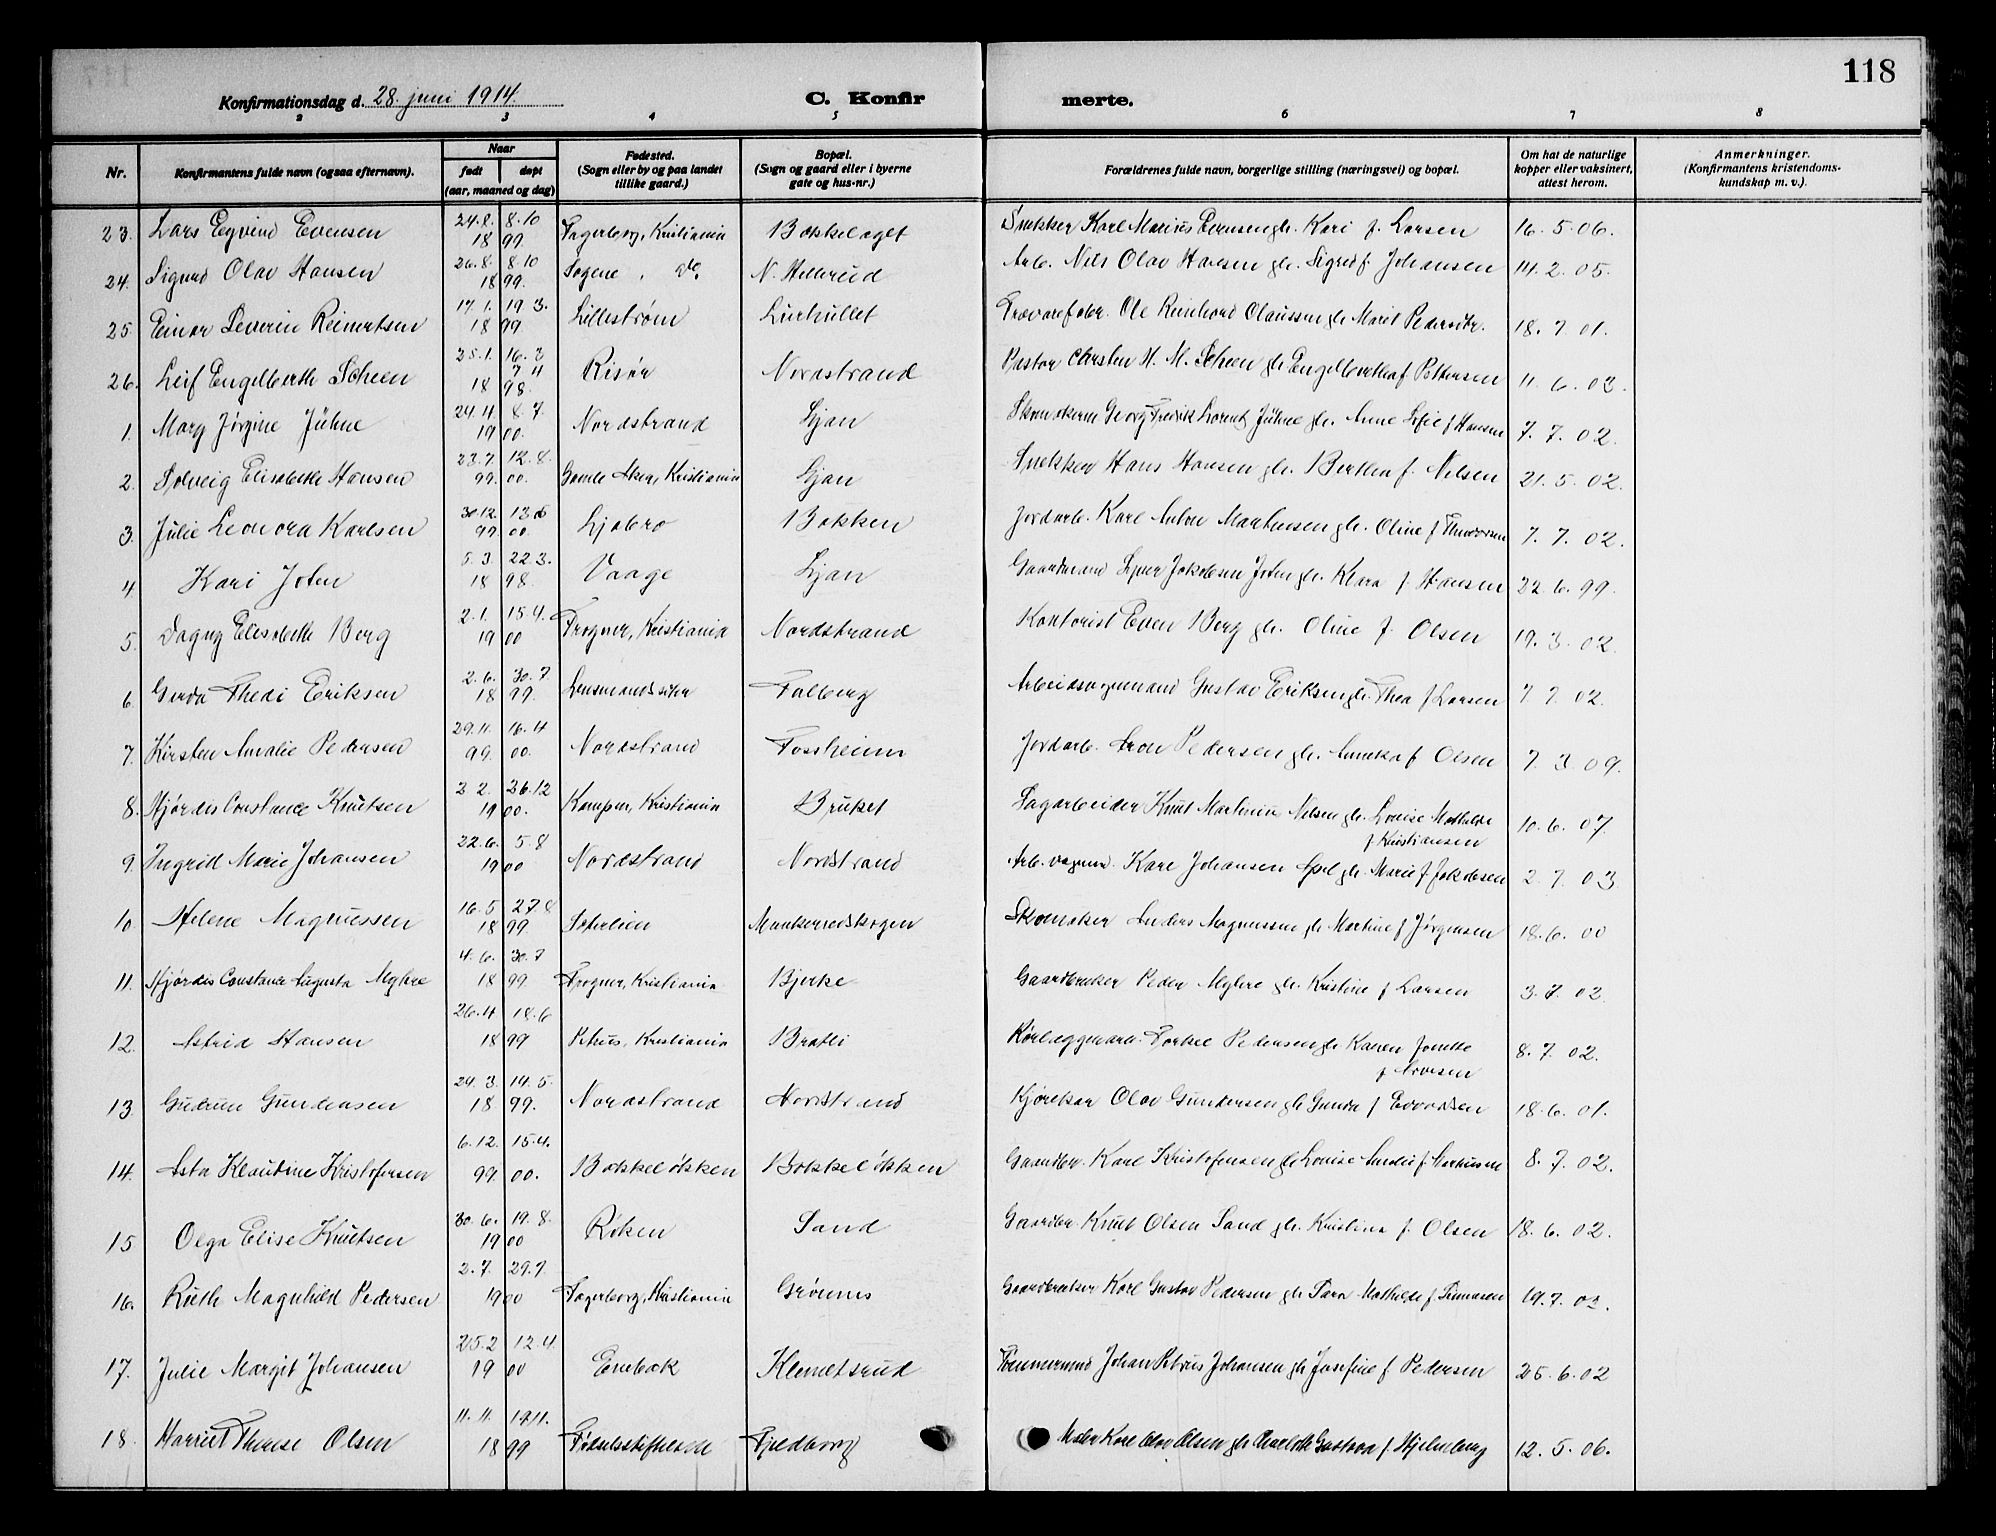 118
Konfirmationsdag d. 28. juni 1914.
C. Konfir merte.
2 3 4 5 6 7 8
Nr. Konfirmantens fulde navn (ogsaa efternavn).
Naar
født døpt
(aar, maaned og dag)
Fødested.
(Sogn eller by og paa landet
tillike gaard.)
Bopæl.
(Sogn og gaard eller i byerne
gate og hus-nr.)
Forældrenes fulde navn, borgerlige stilling (næringsvei) og bopæl.
Om hat de naturlige
kopper eller vaksinert,
attest herom.
Anmerkninger.
(Konfirmantens kristendoms-
kundskap m. v.).
23. Lars Eyvind Evensen 24.8. 1899 8.10 Fagerborg, Kristiania Bækkelaget Snekker Karl Marius Evensen gh. Kari f. Larsen 16.5.06.
24. Sigurd Olav Hansen 26.8. 1899. 8.10 Sagene, do. N. Hellerud Arb. Nils Olav Hansen gh. Sigrid f. Johansen 14.2.05.
25 Einar Severin Reinertsen 17.1. 1899 19 3. Lillestrøm Ole Reinhard Claussen gh. Marit Pedersdtr. 18.7.01.
26. Leif Engelberth Scheen 25.1. 1898. 16.3 7 4 Risør Nordstrand Pastor Carsten H. M. Scheen gh. Engelberthe f. Pettersen 11.6.03.
1. Mary Jørgine Jühne 24.4. 1900. 8.7. Nordstrand Ljan Georg Fredrik Lorentz Jühne gh. Anne Sofie f. Hansen 7.7.02.
2. Solveig Elisabeth Hansen 23.7. 99. 12.8. 00. Gamle Aker, Kristiania Ljan Snekker Hans Hansen gh. Berthe f. Nilsen 21.5.02.
3. Julie Leonora Karlsen 30.12. 99. 00. Ljabro Bakken Jordarb. Karl Anton Marthinsen gh. Oline f. 7.7.02.
4 Kari Joten 5.3. 1898. 22.3. Vaage Ljan Gaardmand Jakobsen Joten gh. Klara f. Hansen 22.6.99.
5. Dagny Elisabeth Berg 2.1. 1900 15.4. Frogner, Kristiania Nordstrand Kontorist Even Berg gh. Oline f. Olsen 19.3.02.
6. Gerda Thedi Eriksen 2.6. 1899. 30.7. Gustav Eriksen gh. Thea f. Larsen 7.7.02.
7. Kirsten Amalie Pedersen 29.11. 99. 16.4 00. Nordstrand Fossheim Jordarb. Aron Pedersen gh. f. Olsen 7.3.09.
8. Hjørdis Constance Knutsen 2 2. 1900. 26.12 Kampen, Kristiania Bruket Sagarbeider Knut Martinius Nilsen gh. Lovise Mathilde
f. Kristiansen 10.6.07
9. Ingrid Marie Johansen 22.6. 1900 5.8 Nordstrand Nordstrand Arb. Johansen gh. Marie f. Jakobsen 2.7.03
10 Helene Magnussen 16.5 1899 27.8 Munkerudskogen Skomaker Anders Magnussen gh. Martine f. Jørgensen 18.6.00
11. Hjørdis Constance Augusta Myhre 4.6. 1899. 30.7 Frogner, Kristiania Bjerke Gaardbruker Peder Myhre gh. Kristine f. Larsen 3.7.02.
12. Astrid Hansen 26.4 1899 18.6 Petrus, Kristiania Bratli Pedersen gh. Karen Josette
f. Iversen 8.7.02.
13 Gudrun Gundersen 24.3. 1899. 14.5. Nordstrand Nordstrand Kjørekar Olav Gundersen gh. Gunda f. Edvardsen 18.6.01.
14. Asta Klaudine Kristofersen 6.12. 99. 15.4. 00. Bækkeløkken Bækkeløkken Gaardbr. Karl Kristofersen gh. Lovise Amalie f. 8.7.02.
15 Olga Elise Knutsen 30.6. 1900 19.8. Røken Sand Gaardbr. Knut Olsen Sand gh. Kristine f. Olsen 18.6.02.
16. Ruth Magnhild Pedersen 2.7. 1900 29.7. Fagerborg, Kristiania Gaardbruker Karl Gustav Pedersen gh. Sara Mathilde f. 19.7.02.
17. Julie Margit Johansen 25.2 1900 12.4. Enebak Klemetsrud Tømmermand Johan Petrus Johansen gh. Josefine f. Pedersen 25.6.02
18. Harriet Therese Olsen 11.11. 1899 19.11. Fødselsstiftelsen Fjeldborg Maler Karl Olav Olsen gh. Charlotte Gustava f. Hjelmberg 12.5.06.